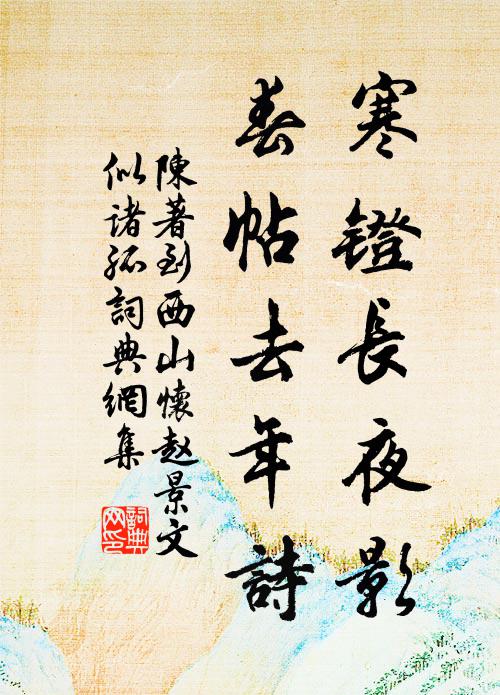 寒鐙長夜影
春帖去年詩
陳著到西山懷赵景文
似诸孤詞典網集
詞典網印